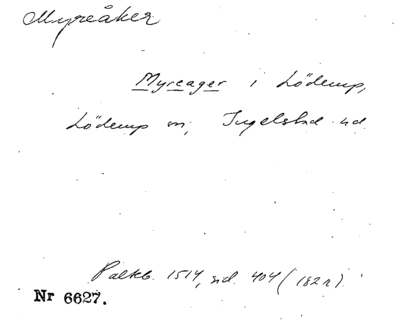 Myreåker
Myreager i Löderup,
Löderup sn, Ingelstad hd.
Palteb. 1514, sid. 404 (182 r).
Nr 6627.